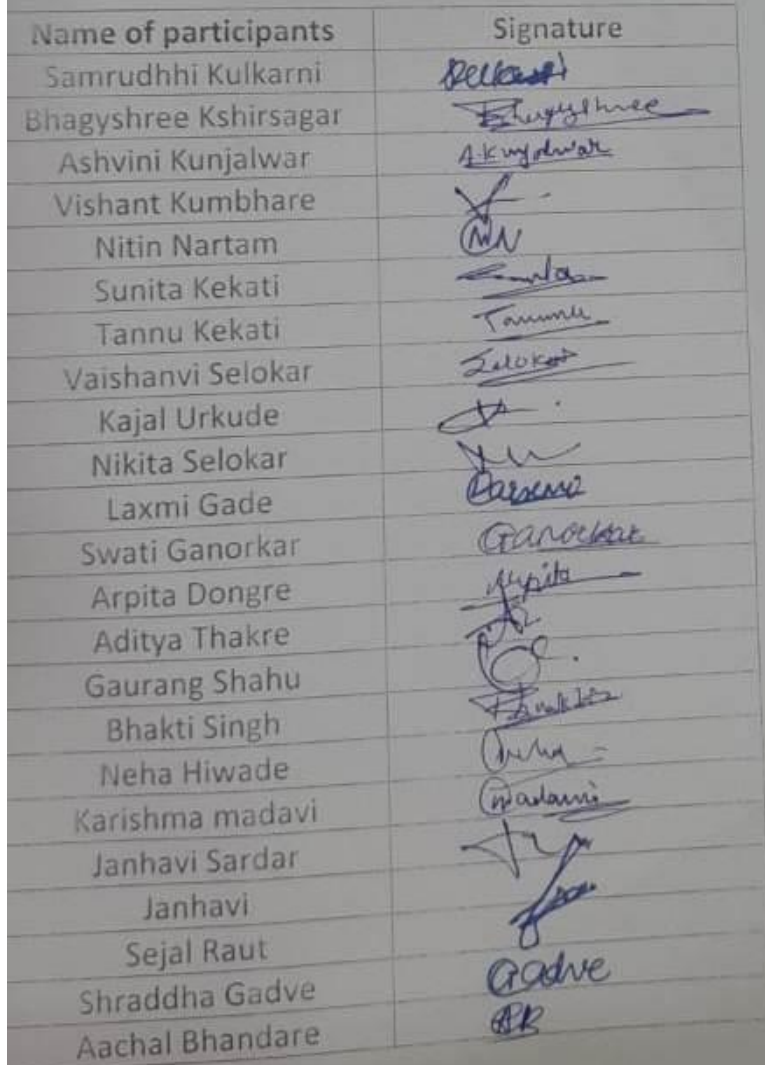 Name of participants Signature
Samrudhhi Kulkarni
Bhagyshree Kshirsagar Bhagyshree
Ashvini Kunjalwar
Vishant Kumbhare
Nitin Nartam
Sunita Kekati
Tannu Kekati Tannu
Vaishanvi Selokar Selokar
Kajal Urkude
Nikita Selokar
Laxmi Gade
Swati Ganorkar Ganorkar
Arpita Dongre Arpita
Aditya Thakre
Gaurang Shahu
Bhakti Singh
Neha Hiwade Neha
Karishma madavi Madavi
Janhavi Sardar
Janhavi
Sejal Raut
Shraddha Gadve Gadve
Aachal Bhandare